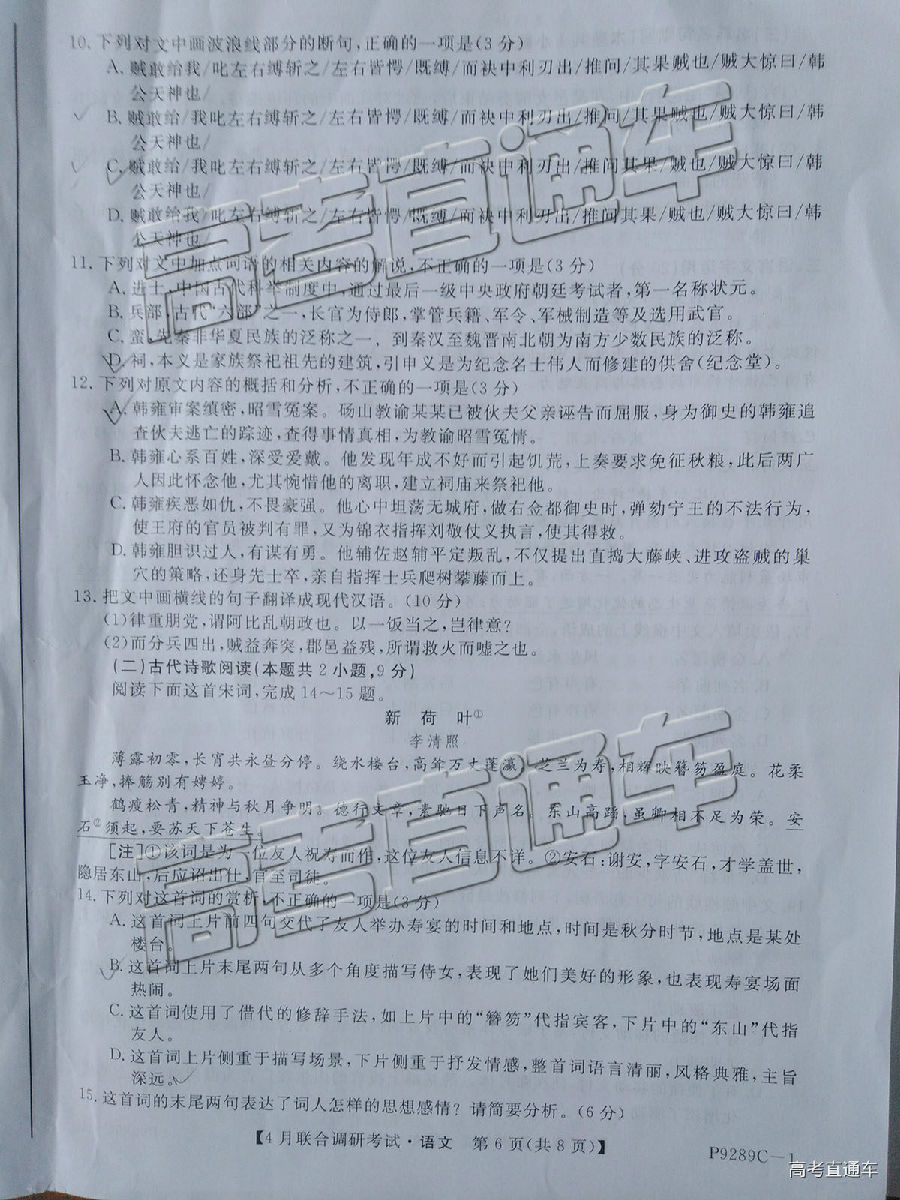 10. 下列对文中画波浪线部分的断句，正确的一项是(3分)
A. 贼敢给我/叱左右缚斩之/左右皆愕/既缚/而袂中利刃出/推问/其果贼也/贼大惊曰/韩
公天神也/
B. 贼敢给/我叱左右缚斩之/左右皆愕/既缚/而袂中利刃出/推问/其果贼也/贼大惊曰/韩
公天神也/
C. 贼敢给/我叱左右缚斩之/左右皆愕/既缚/而袂中利刃出/推问其果/贼也/贼大惊曰/韩
公天神也/
D. 贼敢给我/叱左右缚斩之/左右皆愕/既缚/而袂中利刃出/推问其果/贼也/贼大惊曰/韩
公天神也/
11. 下列对文中加点词语的相关内容的解说，不正确的一项是(3分)
A. 进士，中国古代科举制度中，通过最后一级中央政府朝廷考试者，第一名称状元。
B. 兵部，古代“六部”之一，长官为侍郎，掌管兵籍、军令、军械制造等及选用武官。
C. 蛮，先秦非华夏民族的泛称之一，到秦汉至魏晋南北朝为南方少数民族的泛称。
D. 祠，本义是家族祭祀祖先的建筑，引申义是为纪念名士伟人而修建的供舍(纪念堂)。
12. 下列对原文内容的概括和分析，不正确的一项是(3分)
A. 韩雍审案缜密，昭雪冤案。砀山教谕某某已被伙夫父亲诬告而屈服，身为御史的韩雍追
查伙夫逃亡的踪迹，查得事情真相，为教谕昭雪冤情。
B. 韩雍心系百姓，深受爱戴。他发现年成不好而引起饥荒，上奏要求免征秋粮，此后两广
人因此怀念他，尤其惋惜他的离职，建立祠庙来祭祀他。
C. 韩雍疾恶如仇，不畏豪强。他心中坦荡无城府，做右佥都御史时，弹劾宁王的不法行为，
使王府的官员被判有罪，又为锦衣指挥刘敬仗义执言，使其得救。
D. 韩雍胆识过人，有谋有勇。他辅佐赵辅平定叛乱，不仅提出直捣大藤峡、进攻盗贼的巢
穴的策略，还身先士卒，亲自指挥士兵爬树攀藤而上。
13. 把文中画横线的句子翻译成现代汉语。(10分)
(1)律重朋党，谓阿比乱朝政也。以一饭当之，岂律意？
(2)而分兵四出，贼益奔突，郡邑益残，所谓救火而嘘之也。
(二)古代诗歌阅读(本题共2小题，9分)
阅读下面这首宋词，完成14～15题。
新荷叶①
李清照
薄露初零，长宵共永昼分停。绕水楼台，高耸万丈蓬瀛。芝兰为寿，相辉映簪笏盈庭。花柔
玉净，捧觞别有娉婷。
鹤瘦松青，精神与秋月争明。德行文章，素驰日下声名。东山高蹈，虽卿相不足为荣。安
石②须起，要苏天下苍生。
[注]①该词是为一位友人祝寿而作，这位友人信息不详。②安石：谢安，字安石，才学盖世，
隐居东山，后应诏出仕，官至司徒。
14. 下列对这首词的赏析，不正确的一项是(3分)
A. 这首词上片前四句交代了友人举办寿宴的时间和地点，时间是秋分时节，地点是某处
楼台。
B. 这首词上片末尾两句从多个角度描写侍女，表现了她们美好的形象，也表现寿宴场面
热闹。
C. 这首词使用了借代的修辞手法，如上片中的“簪笏”代指宾客，下片中的“东山”代指
友人。
D. 这首词上片侧重于描写场景，下片侧重于抒发情感，整首词语言清丽，风格典雅，主旨
深远。
15. 这首词的末尾两句表达了词人怎样的思想感情？请简要分析。(6分)
【4月联合调研考试·语文 第6页(共8页)】
P9289C—1
高考直通车
高考直通车
高考直通车